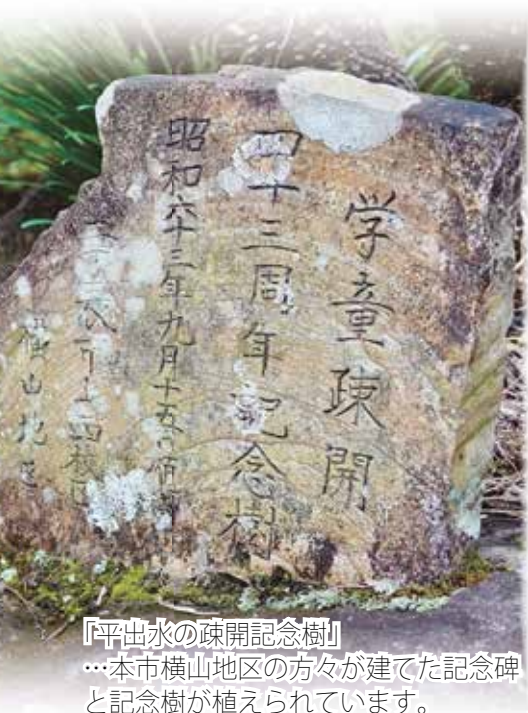 学童疎開
四十三周年記念樹
昭和六十三年九月十五日
横山地区
「平出水の疎開記念樹」
…本市横山地区の方々が建てた記念碑
と記念樹が植えられています。